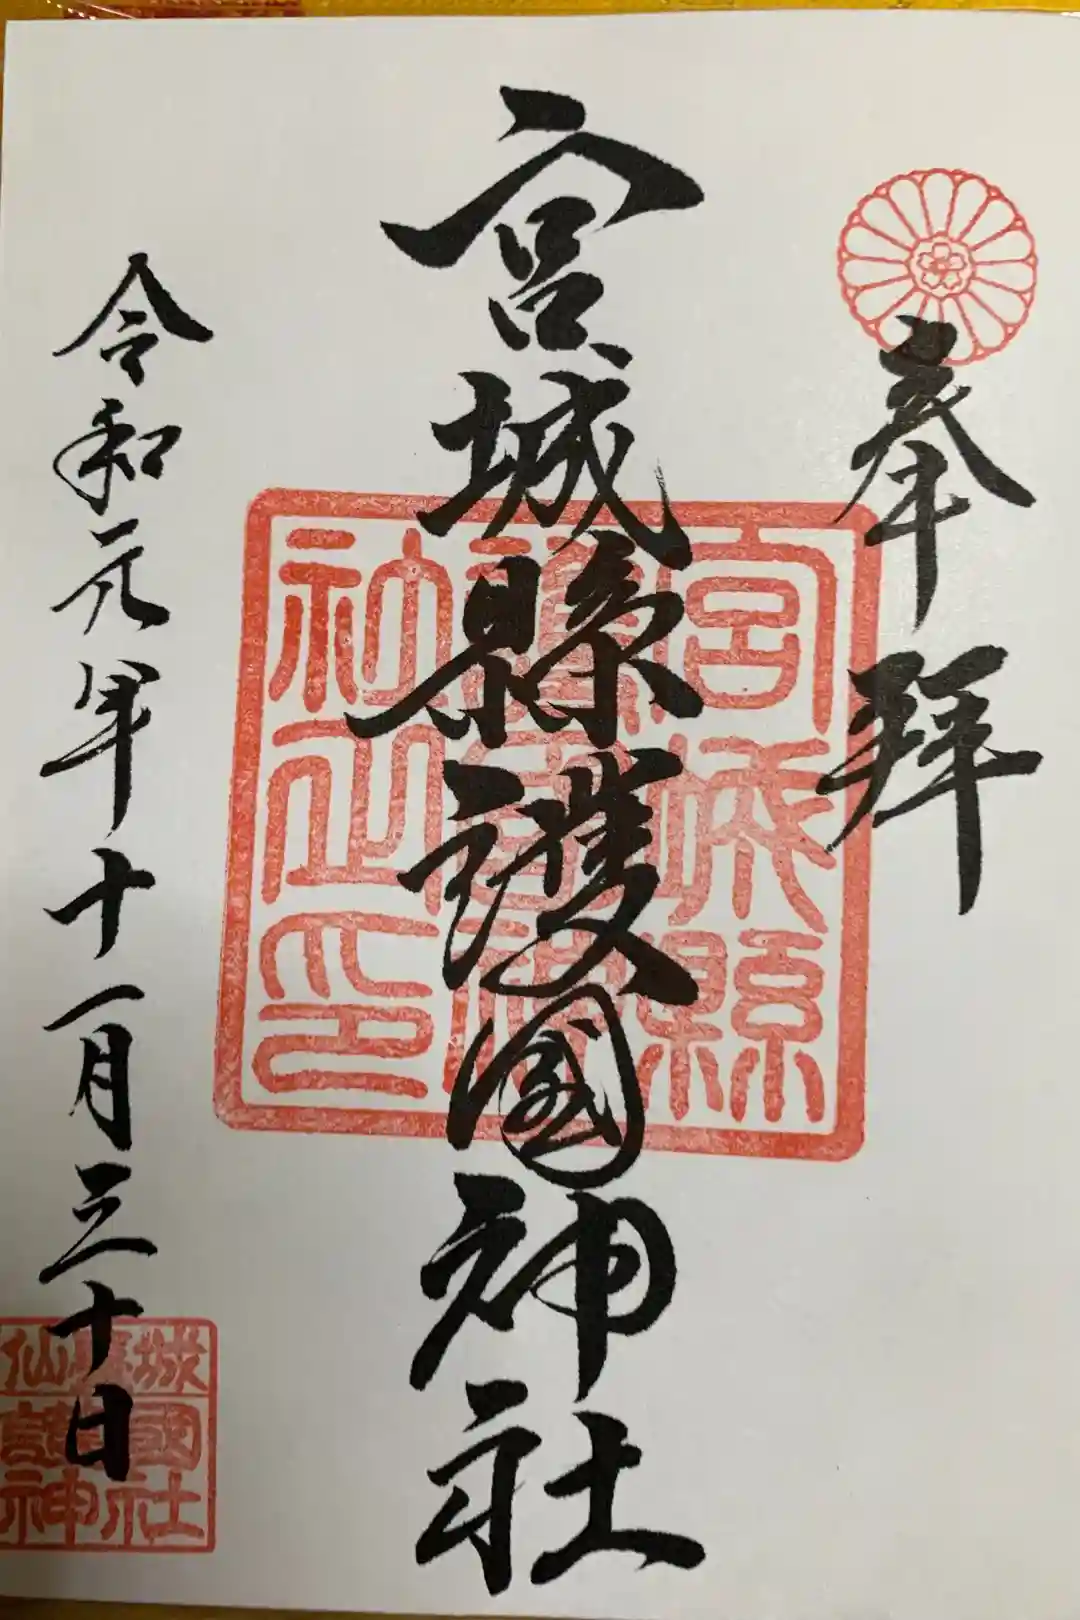 奉拝
宮城縣護國神社
令和元年十一月三十日
宮城縣
護國神
社之印
仙臺城
護國
神社